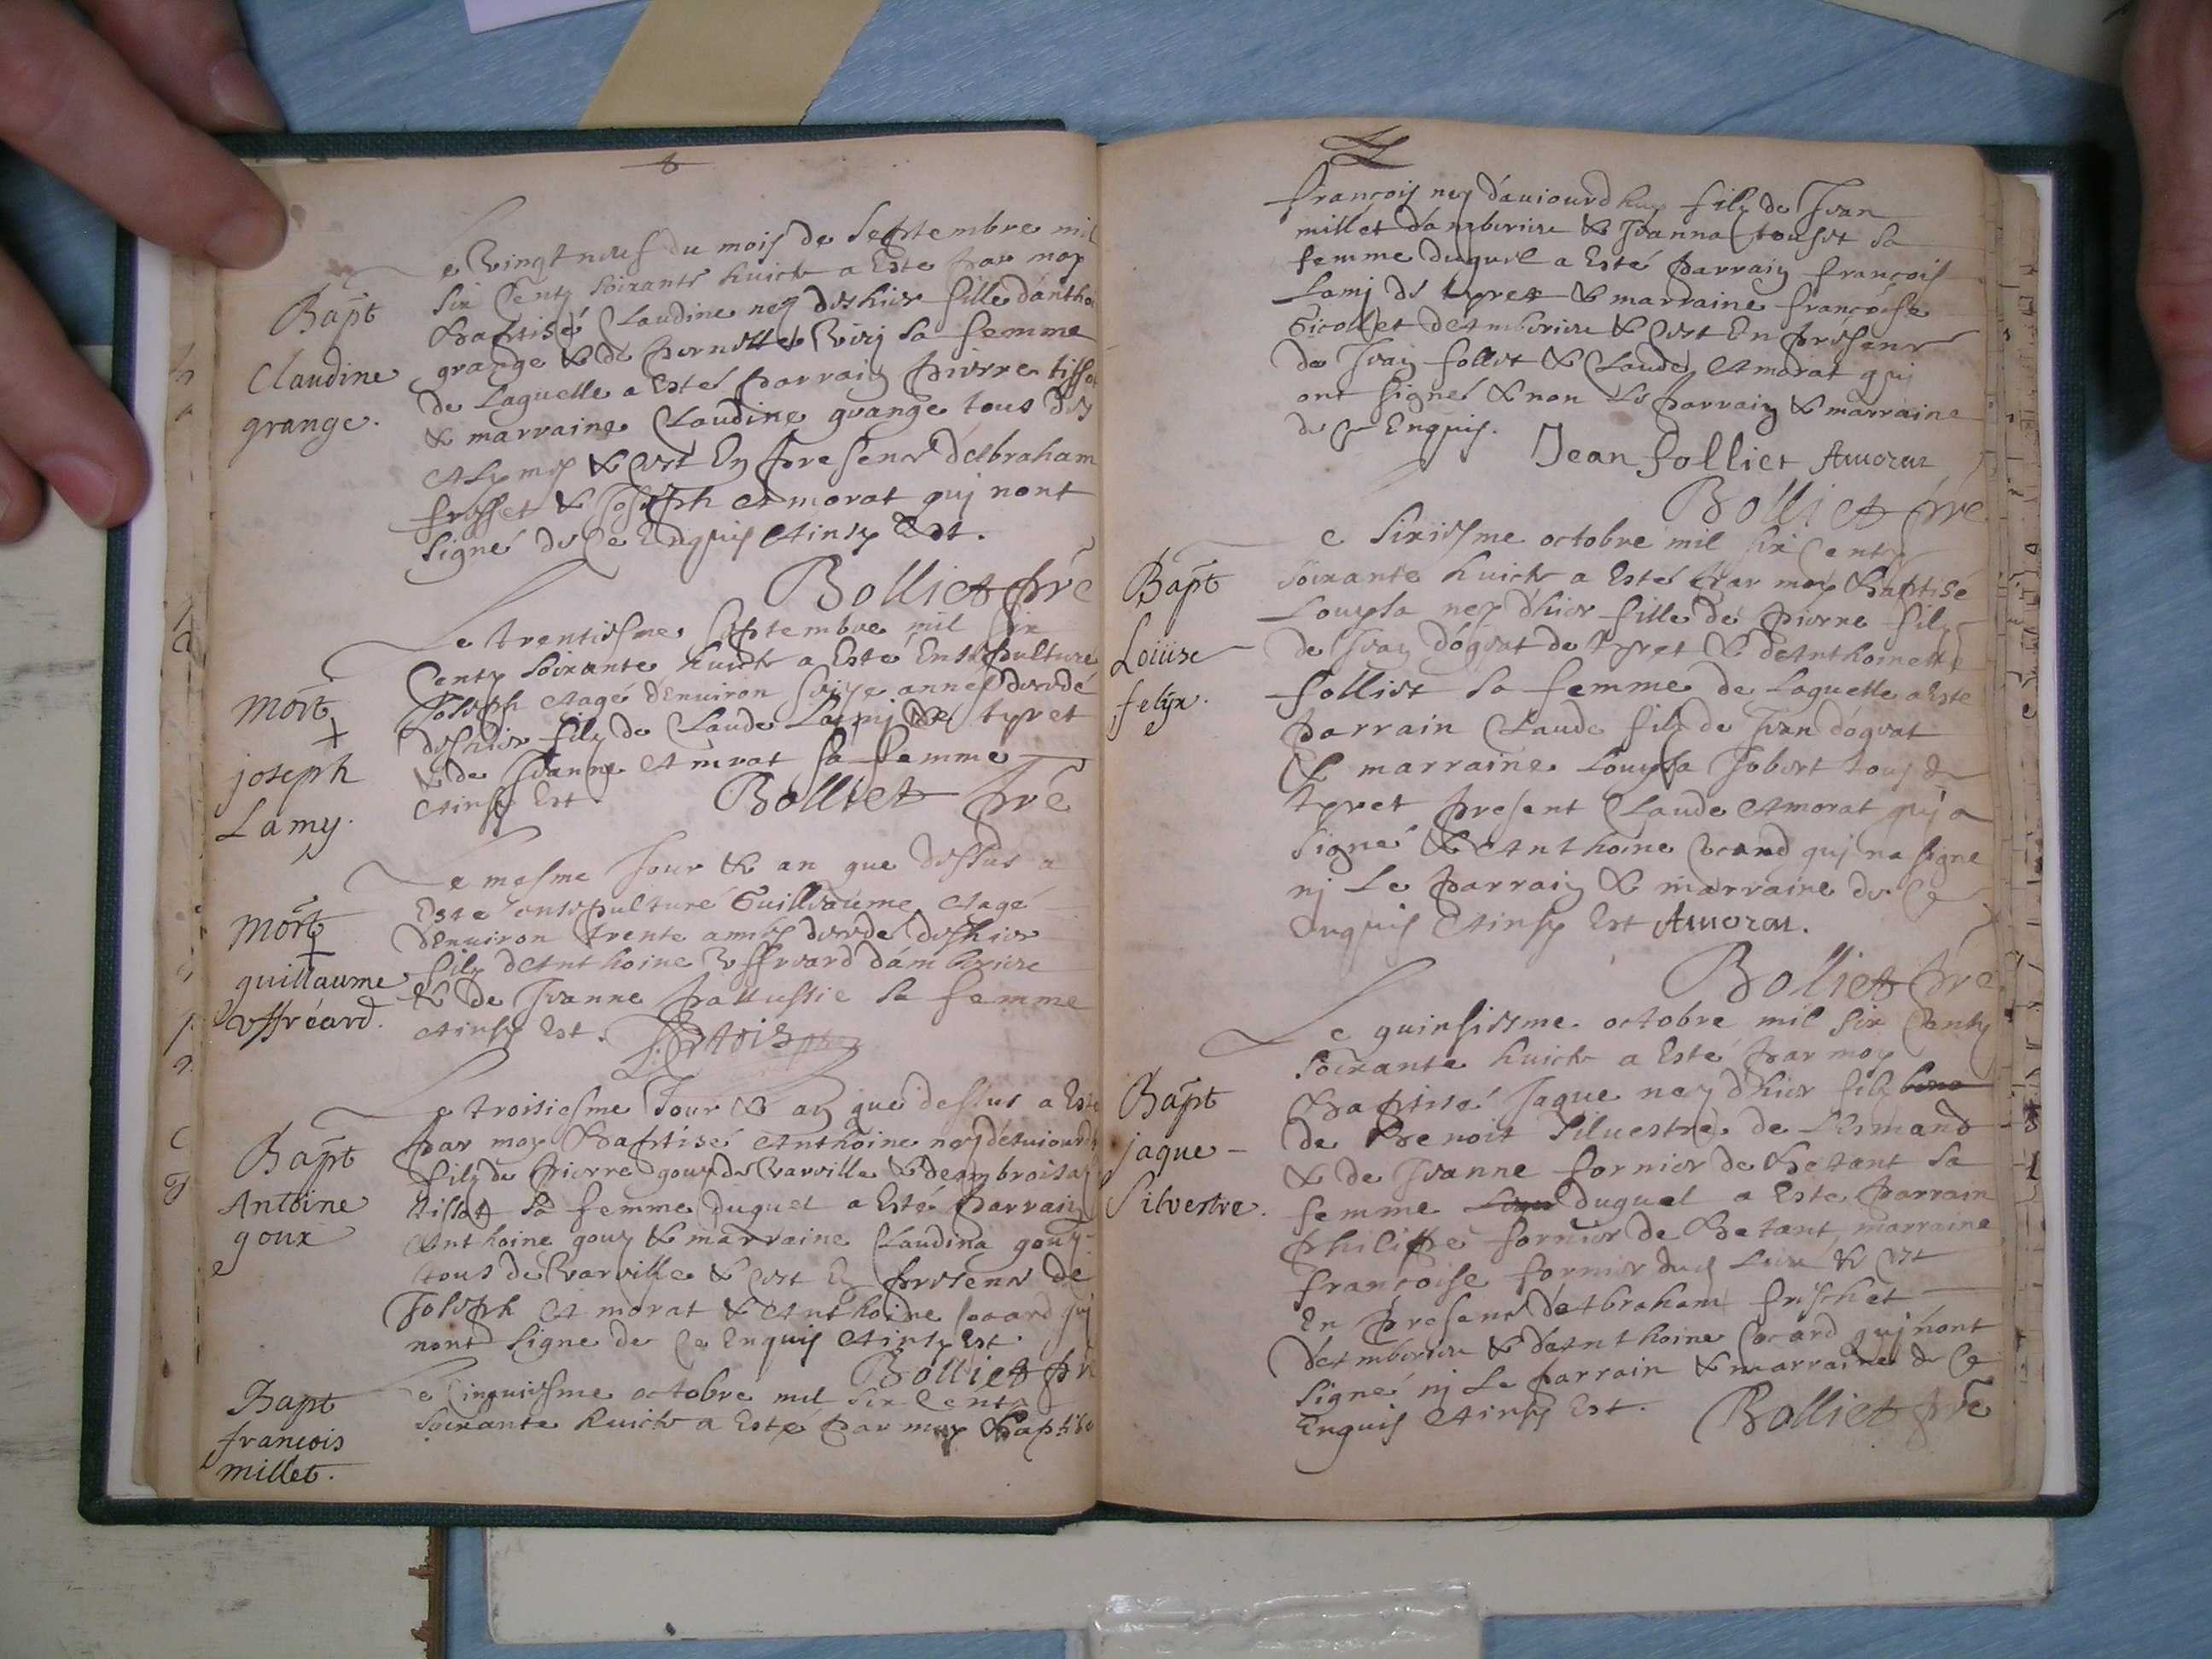 8
Bapt
Claudine
grange.
Le vingt neuf du mois de Septembre mil
Six Cents soixante huict a Esté par moy
Baptisé Claudine ney deshier fille danthoi
grange & de pernette sa femme
de Laquelle a Esté parrain pierre tissot
& marraine Claudine grange tous des
Alymes & c'est En presence d'Abraham
frosset & Joseph Amorat qui nont
Signé de Ce Enquis Ainsy Est.
Bolliet pre
mort
joseph
Lamy.
Le trentiesme septembre mil Six
Cents soixante huict a Esté Ensepulturé
Joseph Aagé d'Enuiron seize années decedé
deshier filz de Claude Lamj de tyret
& de Jeanne Amorat sa femme
Ainsy Est. Bolliet pre
mort
guillaume
uffréard.
Le mesme Jour & an que dessus a
Esté ensepulturé Guilleaume Aagé
d'Enuiron trente années decedé deshier
filz d'Anthoine uffreard d'amberieu
& de Jeanne sa femme
Ainsy Est.
Bapt
Antoine
goux
Le troisiesme Jour & an que dessus a Esté
par moy Baptisé Anthoine ney d'Auiourdhuy
filz de pierre gouz de Varville & de
tissot sa femme duquel a Esté parrain
Anthoine gouz & marraine Claudina gouz
tous de Varville & c'est En presence de
Joseph Amorat & Anthoine Cocard qui
nont Signe de Ce Enquis Ainsy Est.
Bolliet pre
Bapt
francois
millet.
Le Cinquiesme octobre mil six Cents
soixante huict a Esté par moy Baptisé
françois ney d'auiourdhuy filz de Jean
millet d'amberieu & Jeanna sa
femme duquel a Esté parrain françois
Lamj de tyret & marraine françoise
Gicollet d'Amberieu & c'est En présence
de Jean folliet & Claude Amorat qui
ont signé & non Le parrain & marraine
de Ce Enquis.
Jean folliet Amorat
Bolliet pre
Bapt
Loüise
felix.
Le Sixiesme octobre mil six Cents
soixante huict a Esté par moy Baptisé
Louysa ney d'hier fille de pierre filz
de Jean dogvat de tyret & d'Anthoinette
folliet sa femme de Laquelle a Este
parrain Claude filz de Jean dogvat
& marraine Louysa Jobert tous de
tyret present Claude Amorat qui a
Signé & Anthoine Cocard qui na signe
nj Le parrain & marraine de Ce
enquis Ainsy Est Amorat.
Bolliet pre
Bapt
jaque
Silvestre.
Le quinsiesme octobre mil Six Cents
soixante huict a Esté par moy
Baptisé Jaque ney d'hier filz
de Benoit Siluestre de L'Ermand
& de Jeanne fornier de Betant sa
femme duquel a Este parrain
philippe fornier de Betant, marraine
françoise fornier dud Lieu & c'est
En presence d'Abraham frischet
d'Amberieu & d'Anthoine Cocard qui nont
Signé nj Le parrain & marraine de Ce
Enquis Ainsy Est. Bolliet pre